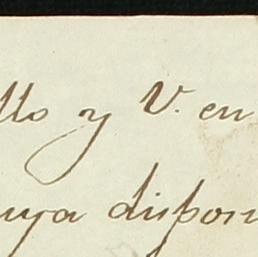 llo y V. en
uya dispon